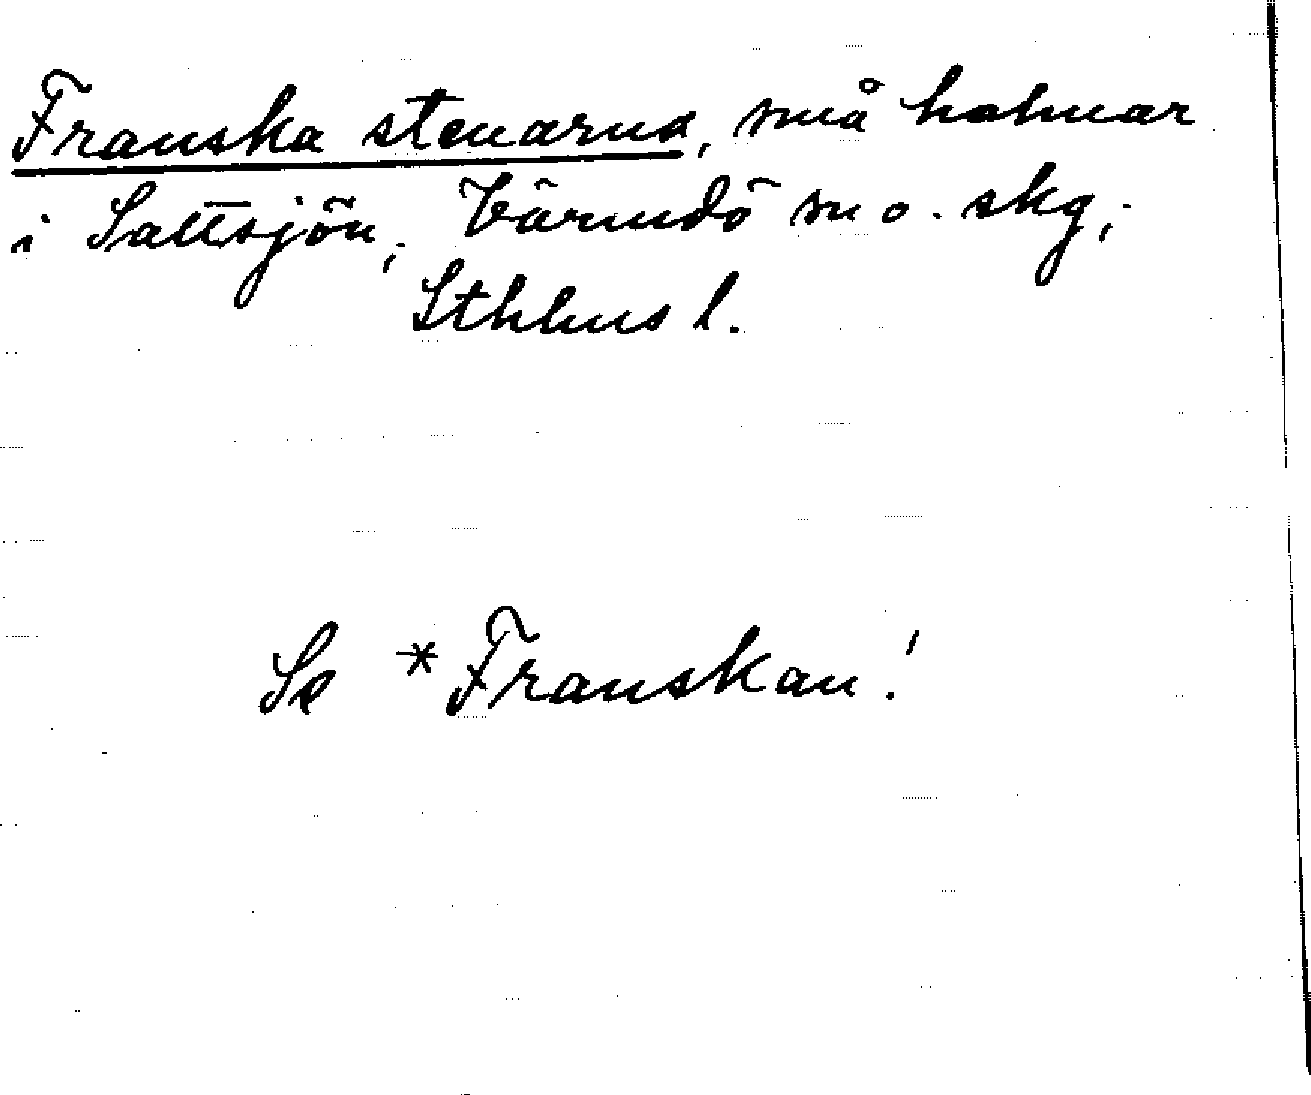 Franska stenarna, små holmar
i Saltsjön, Värmdö sn o. skg,
Sthlms l.
Se *Franskan!